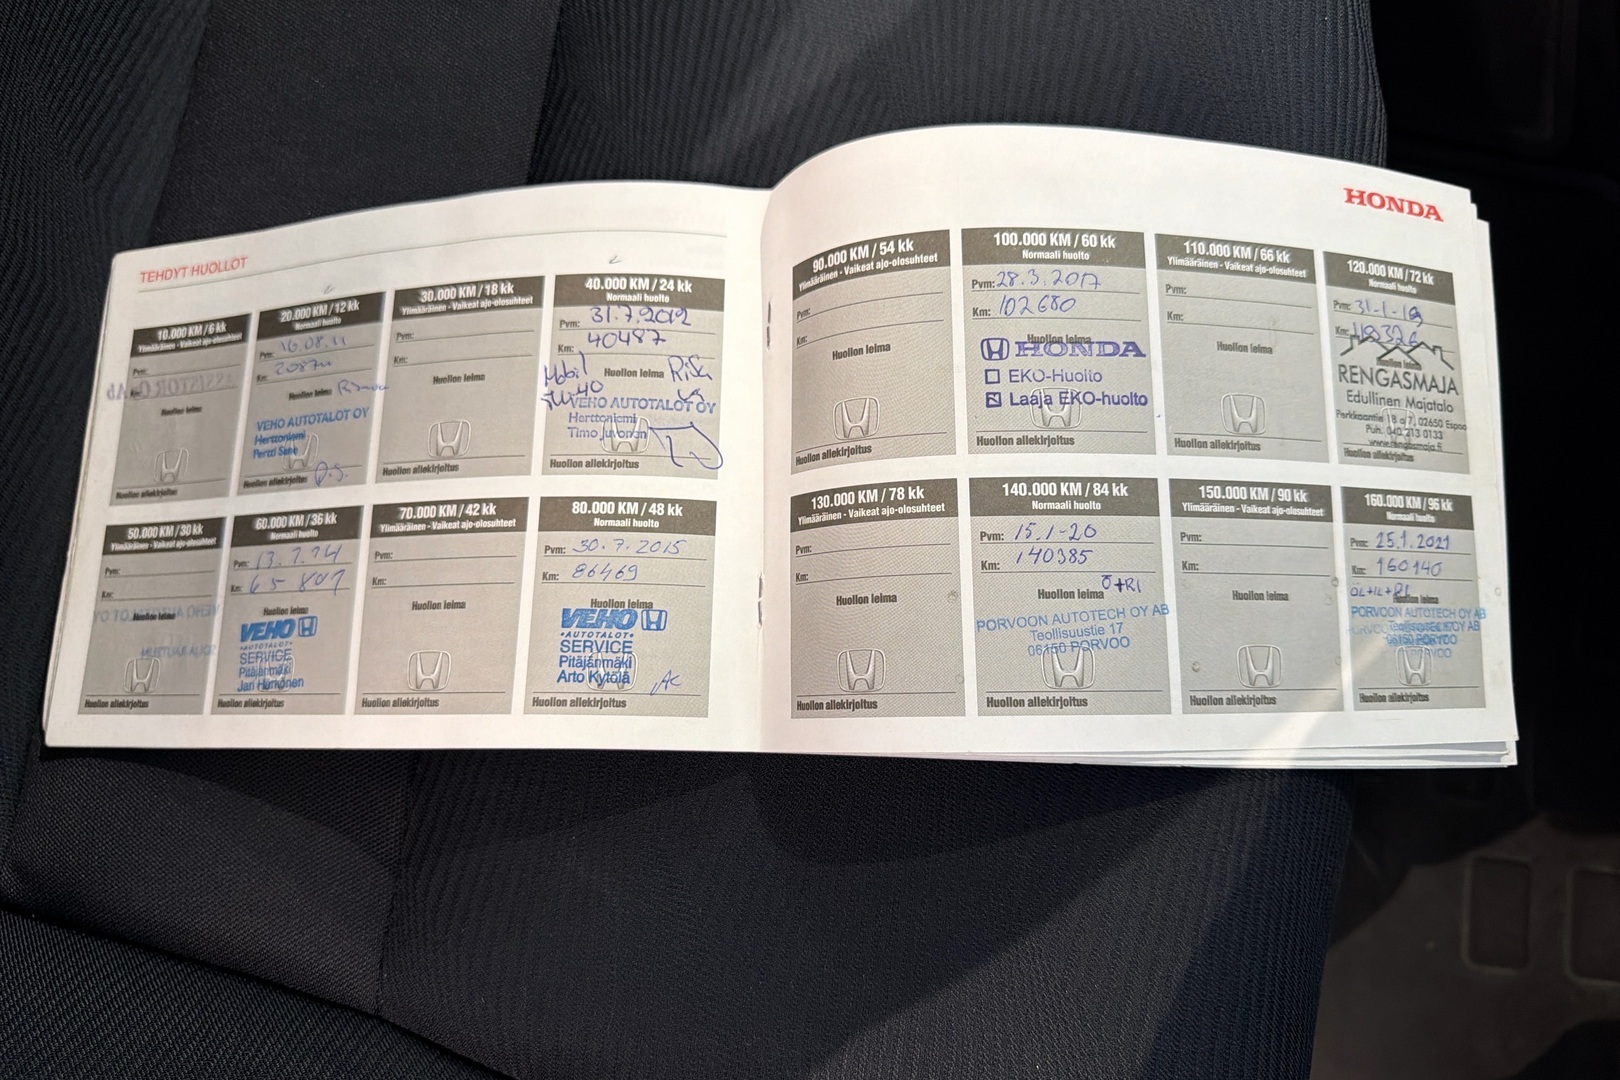 TEHDYT HUOLLOT
10.000 KM / 6 kk
Ylimääräinen - Vaikeat ajo-olosuhteet
Pvm:
Km:
Huollon leima
Huollon allekirjoitus
20.000 KM / 12 kk
Normaali huolto
Pvm: 16.08.11
Km:
Huollon leima
VEHO AUTOTALOT OY
Herttoniemi
Pertti Sane
Huollon allekirjoitus P.S.
30.000 KM / 18 kk
Ylimääräinen - Vaikeat ajo-olosuhteet
Pvm:
Km:
Huollon leima
Huollon allekirjoitus
40.000 KM / 24 kk
Normaali huolto
Pvm: 31.7.2012
Km: 40487
Mobil Huollon leima
VEHO AUTOTALOT OY
Herttoniemi
Timo Juvonen
Huollon allekirjoitus
50.000 KM / 30 kk
Ylimääräinen - Vaikeat ajo-olosuhteet
Pvm:
Km:
Huollon leima
Huollon allekirjoitus
60.000 KM / 36 kk
Normaali huolto
Pvm: 13.7.14
Km: 65 807
Huollon leima
VEHO
SERVICE
Pitäjänmäki
Jari Hürkönen
Huollon allekirjoitus
70.000 KM / 42 kk
Ylimääräinen - Vaikeat ajo-olosuhteet
Pvm:
Km:
Huollon leima
Huollon allekirjoitus
80.000 KM / 48 kk
Normaali huolto
Pvm: 30.7.2015
Km: 86469
Huollon leima
VEHO
•AUTOTALOT•
SERVICE
Pitäjänmäki
Arto Kytölä AK
Huollon allekirjoitus
HONDA
90.000 KM / 54 kk
Ylimääräinen - Vaikeat ajo-olosuhteet
Pvm:
Km:
Huollon leima
Huollon allekirjoitus
100.000 KM / 60 kk
Normaali huolto
Pvm: 28.3.2017
Km: 102680
Huollon leima
HONDA
EKO-Huolto
Laaja EKO-huolto
Huollon allekirjoitus
110.000 KM / 66 kk
Ylimääräinen - Vaikeat ajo-olosuhteet
Pvm:
Km:
Huollon leima
Huollon allekirjoitus
120.000 KM / 72 kk
Normaali huolto
Pvm: 31-1-19
Km:
Huollon leima
RENGASMAJA
Edullinen Majatalo
Perkkaantie 18 a 7, 02650 Espoo
Puh. 040 213 0133
www.rengasmaja.fi
Huollon allekirjoitus
130.000 KM / 78 kk
Ylimääräinen - Vaikeat ajo-olosuhteet
Pvm:
Km:
Huollon leima
Huollon allekirjoitus
140.000 KM / 84 kk
Normaali huolto
Pvm: 15.1-20
Km: 140385
Huollon leima Ö+RI
PORVOON AUTOTECH OY AB
Teollisuustie 17
06150 PORVOO
Huollon allekirjoitus
150.000 KM / 90 kk
Ylimääräinen - Vaikeat ajo-olosuhteet
Pvm:
Km:
Huollon leima
Huollon allekirjoitus
160.000 KM / 96 kk
Normaali huolto
Pvm: 25.1.2021
Km: 160140
Huollon leima
PORVOON AUTOTECH OY AB
06150 PORVOO
Huollon allekirjoitus